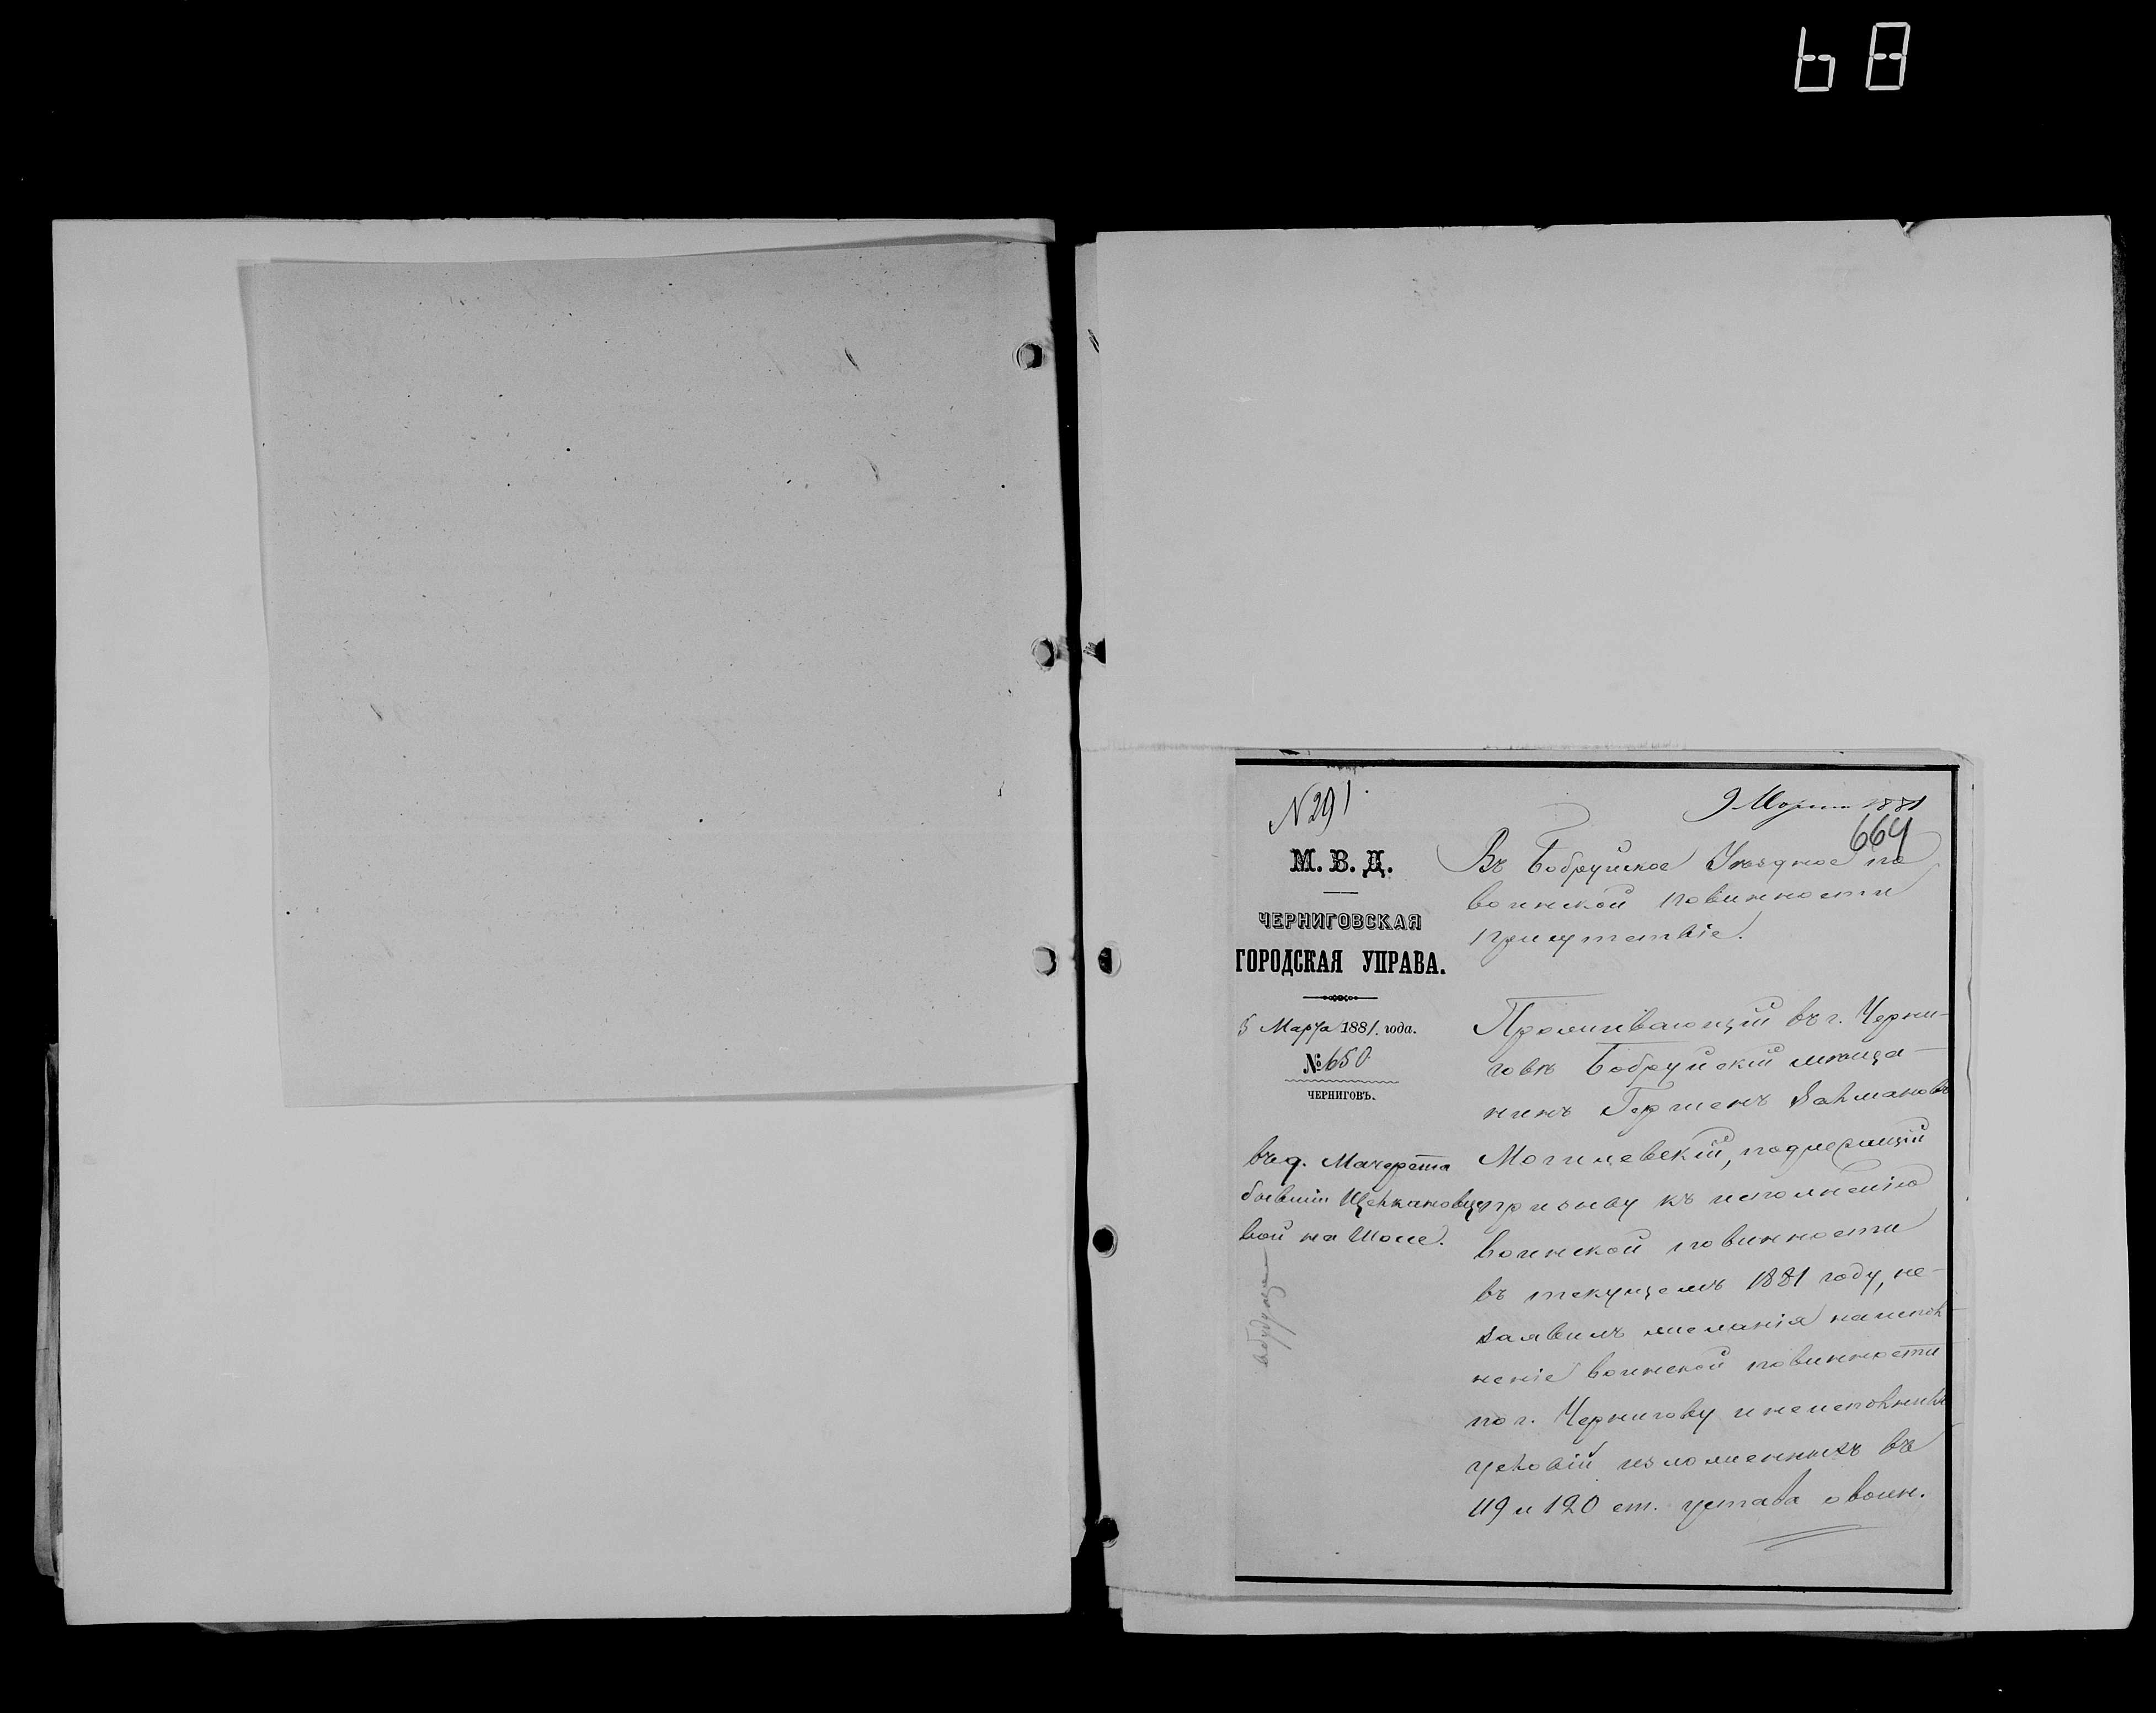 68
N 291
9 Марта 1881
664
М. В. Д.
ЧЕРНИГОВСКАЯ
ГОРОДСКАЯ УПРАВА.
5 Марта 1881 года.
№ 650
ЧЕРНИГОВЪ.
въ д.
бывшій
вой на Шоле.
Въ Бобруйское Уѣздное по
воинской повинности
присутствіе.
Проживающій въ г. Черни-
говѣ Бобруйскій мѣща-
нинъ Гершенъ Залмановъ
Могилевскій, подлежащій
призыву къ исполненію
воинской повинности
въ текущемъ 1881 году, не
заявилъ желанія на испол-
неніе воинской повинности
по г. Чернигову и неисполнилъ
условій изложенныхъ въ
119 и 120 ст. устава о воин.